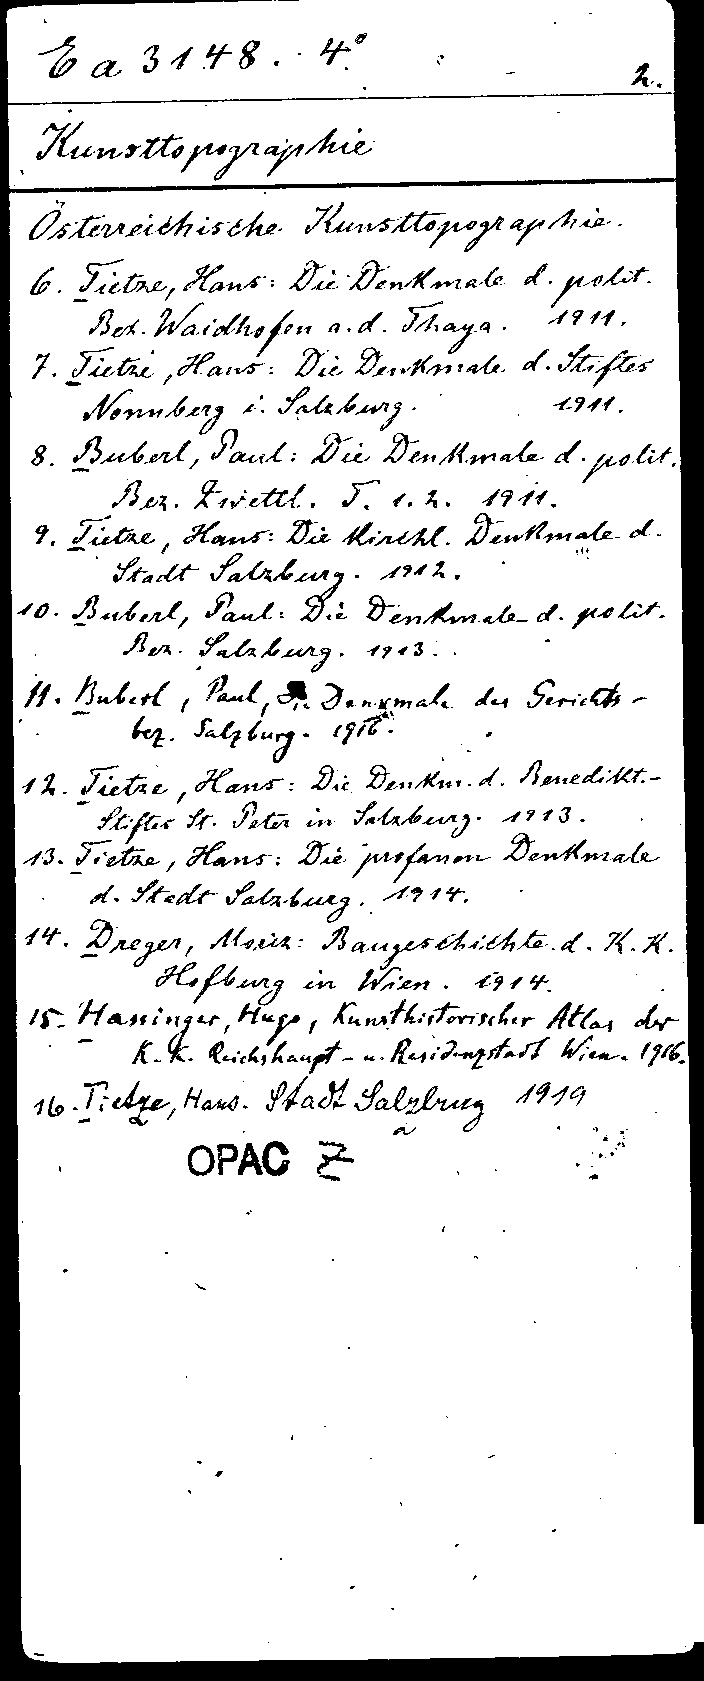 Ea 3148. 4°.
2.
Kunsttopographie
Österreichische Kunsttopographie.
6. Tietze, Hans: Die Denkmale d. polit.
Bez. Waidhofen a. d. Thaya. 1911.
7. Tietze, Hans: Die Denkmale d. Stiftes
Nonnberg i. Salzburg. 1911.
8. Buberl, Paul: Die Denkmale d. polit.
Bez. Zwettl. T. 1. 2. 1911.
9. Tietze, Hans: Die Kirchl. Denkmale d.
Stadt Salzburg. 1912.
10. Buberl, Paul: Die Denkmale d. polit.
Bez. Salzburg. 1913.
11. Buberl, Paul, Die Denkmale des Gerichts-
bez. Salzburg. 1916.
12. Tietze, Hans: Die Denkm. d. Benedikt.-
Stiftes St. Peter in Salzburg. 1913.
13. Tietze, Hans: Die profanen Denkmale
d. Stadt Salzburg. 1914.
14. Dreger, Moriz: Baugeschichte d. K. K.
Hofburg in Wien. 1914.
15. Hassinger, Hugo, Kunsthistorischer Atlas der
K. K. Reichshaupt- u. Residenzstadt Wien. 1916.
16. Tietze, Hans. Stadt Salzbrug 1919
OPAC Z